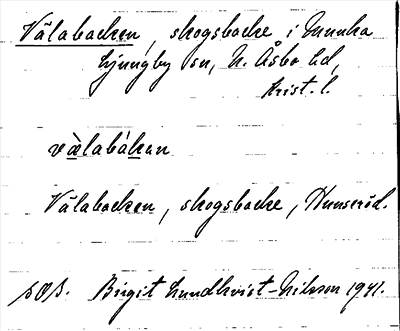 Vålabacken, skogsbacke i Munka
Ljungby sn, N. Åsbo hd,
Krist. l.
vàlabákan
Vålabacken, skogsbacke, Hunseröd.
Birgit Lundkvist-Nilsson 1941.